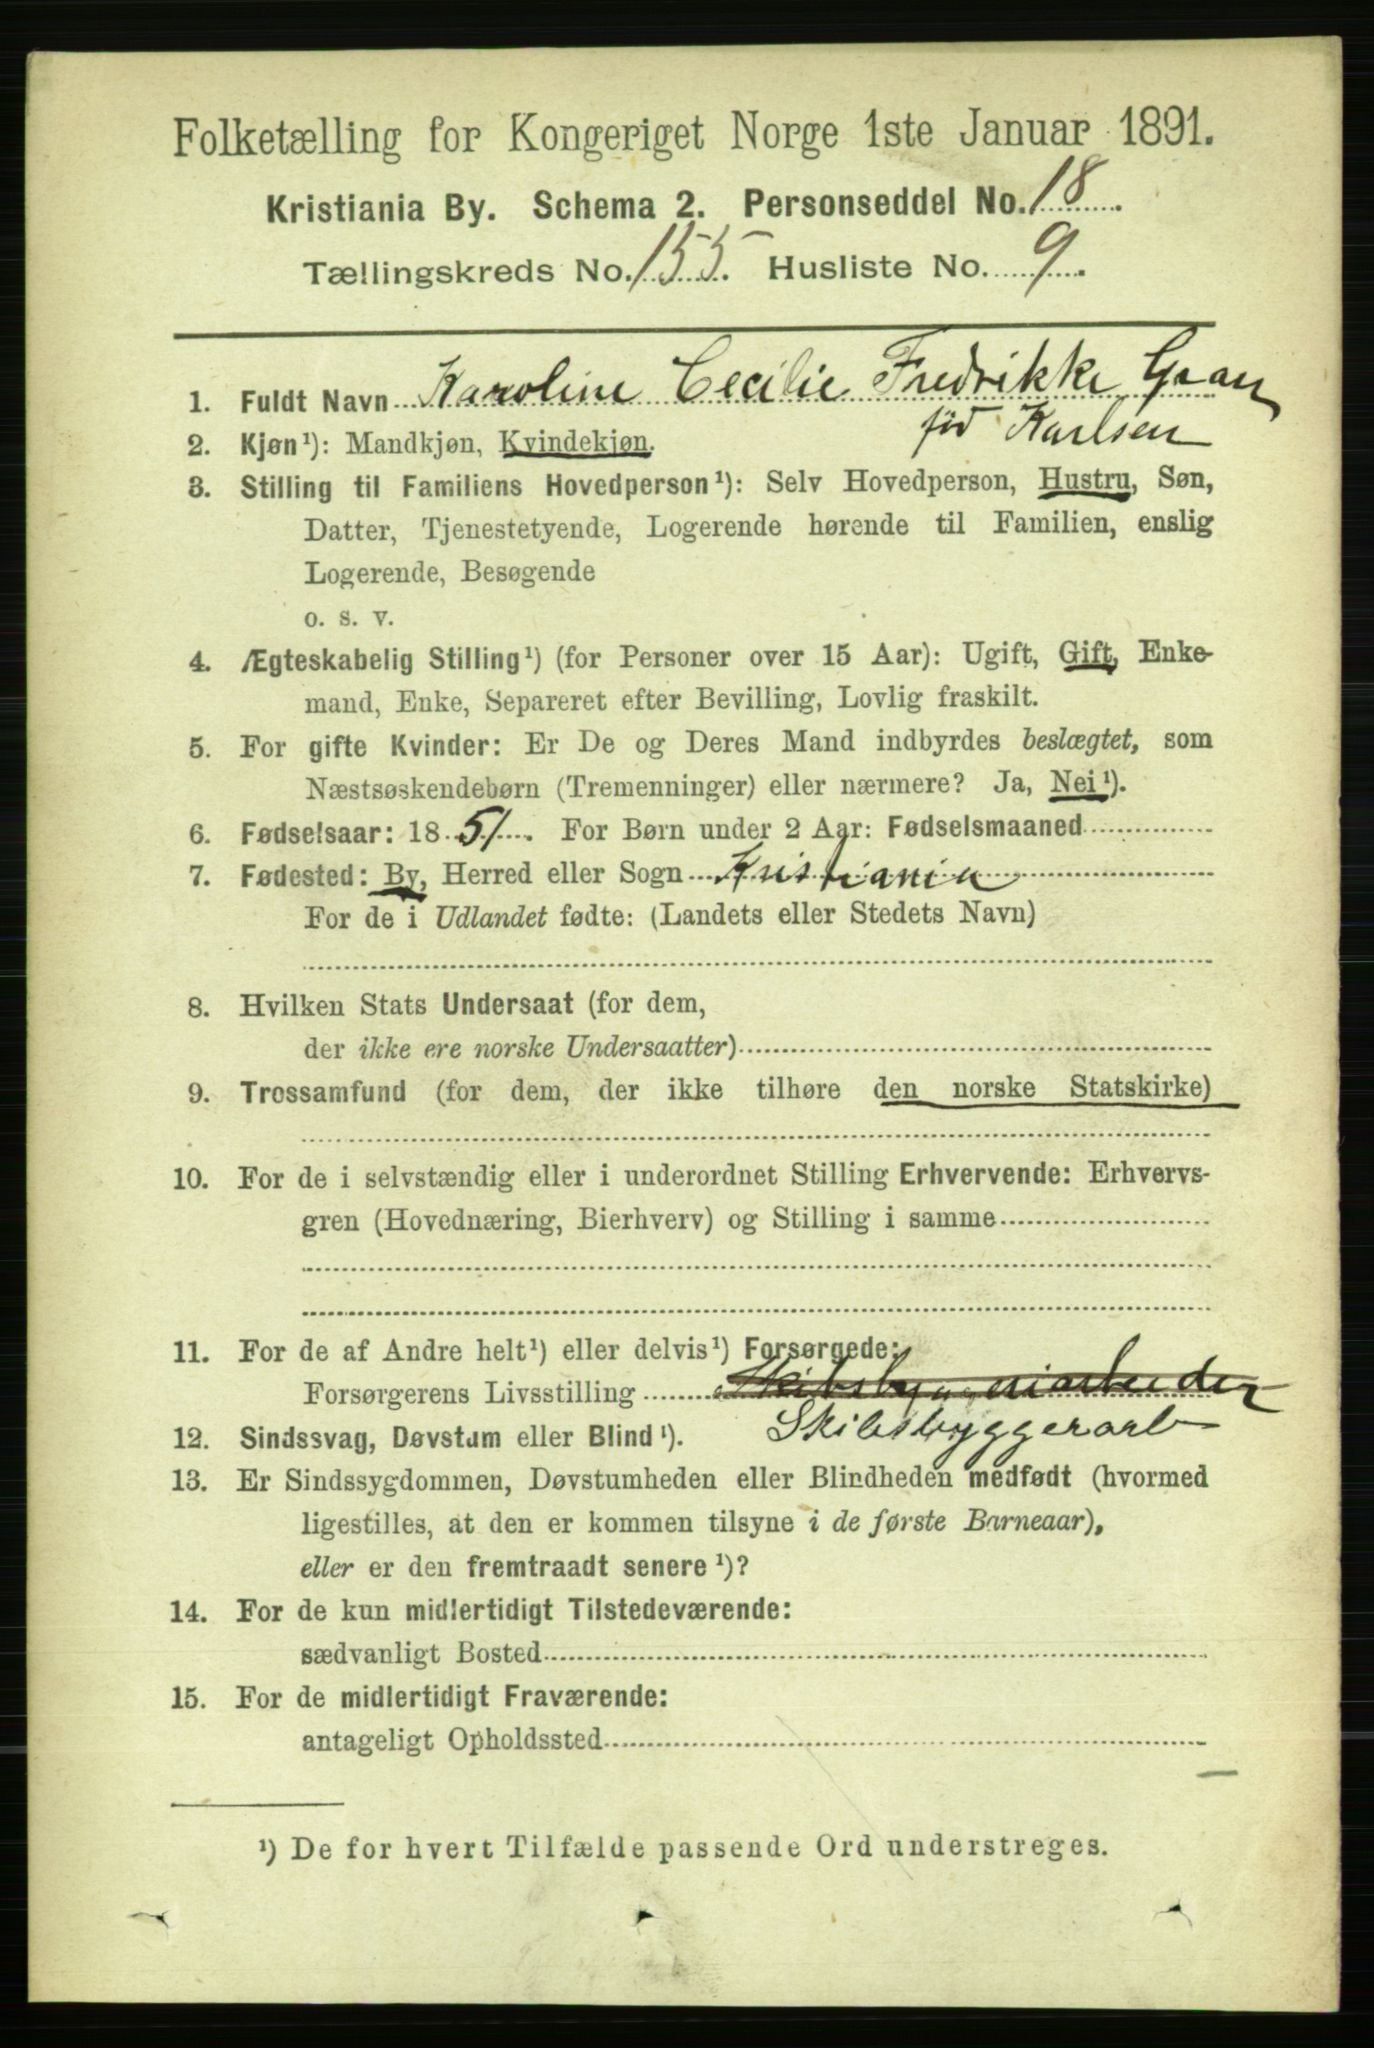 Folketælling for Kongeriget Norge 1ste Januar 1891.
Kristiania By. Schema 2. Personseddel No. 18.
Tællingskreds No. 155. Husliste No. 9.
1. Fuldt Navn Karoline Cecilie Fredrikke Graan
fød Karlsen
2. Kjøn¹): Mandkjøn, Kvindekjøn.
3. Stilling til Familiens Hovedperson¹): Selv Hovedperson, Hustru, Søn,
Datter, Tjenestetyende, Logerende hørende til Familien, enslig
Logerende, Besøgende
o. s. v.
4. Ægteskabelig Stilling¹) (for Personer over 15 Aar): Ugift, Gift, Enke-
mand, Enke, Separeret efter Bevilling, Lovlig fraskilt.
5. For gifte Kvinder: Er De og Deres Mand indbyrdes beslægtet, som
Næstsøskendebørn (Tremenninger) eller nærmere? Ja, Nei¹).
6. Fødselsaar: 1851. For Børn under 2 Aar: Fødselsmaaned
7. Fødested: By, Herred eller Sogn Kristiania
For de i Udlandet fødte: (Landets eller Stedets Navn)
8. Hvilken Stats Undersaat (for dem,
der ikke ere norske Undersaatter)
9. Trossamfund (for dem, der ikke tilhøre den norske Statskirke)
10. For de i selvstændig eller i underordnet Stilling Erhvervende: Erhvervs-
gren (Hovednæring, Bierhverv) og Stilling i samme
11. For de af Andre helt¹) eller delvis¹) Forsørgede:
Forsørgerens Livsstilling Skibsbyggeriarbeider
Skibsbyggerarb
12. Sindssvag, Døvstum eller Blind¹).
13. Er Sindssygdommen, Døvstumheden eller Blindheden medfødt (hvormed
ligestilles, at den er kommen tilsyne i de første Barneaar),
eller er den fremtraadt senere¹)?
14. For de kun midlertidigt Tilstedeværende:
sædvanligt Bosted
15. For de midlertidigt Fraværende:
antageligt Opholdssted
¹) De for hvert Tilfælde passende Ord understreges.